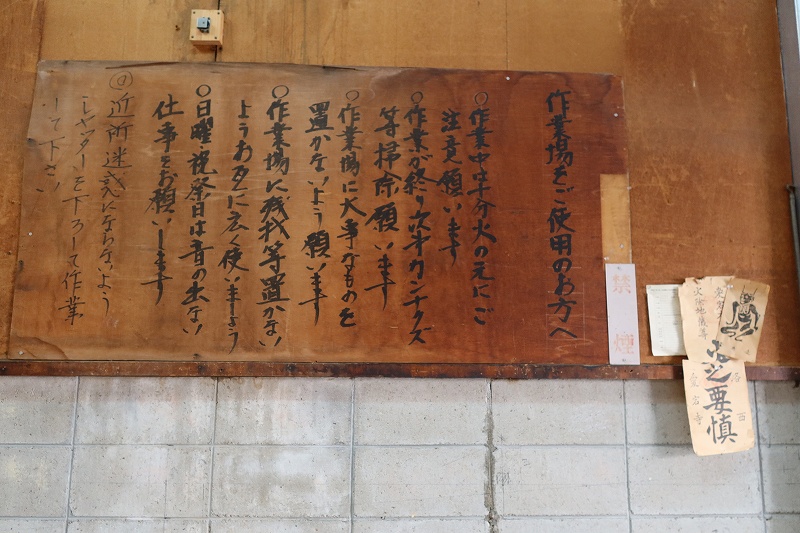 作業場をご使用のお方へ
○作業中は十分火の元にご
注意願います
○作業が終り次第カンナクズ
等掃除願います
○作業場に大事なものを
置かないよう願います
○作業場に残材等置かない
ようお互に広く使いましょう
○日曜祝祭日は音の出ない
仕事をお願いします
◎近所迷惑にならないよう
シャッターを下ろして作業
して下さい
禁煙
火之要慎
愛宕寺